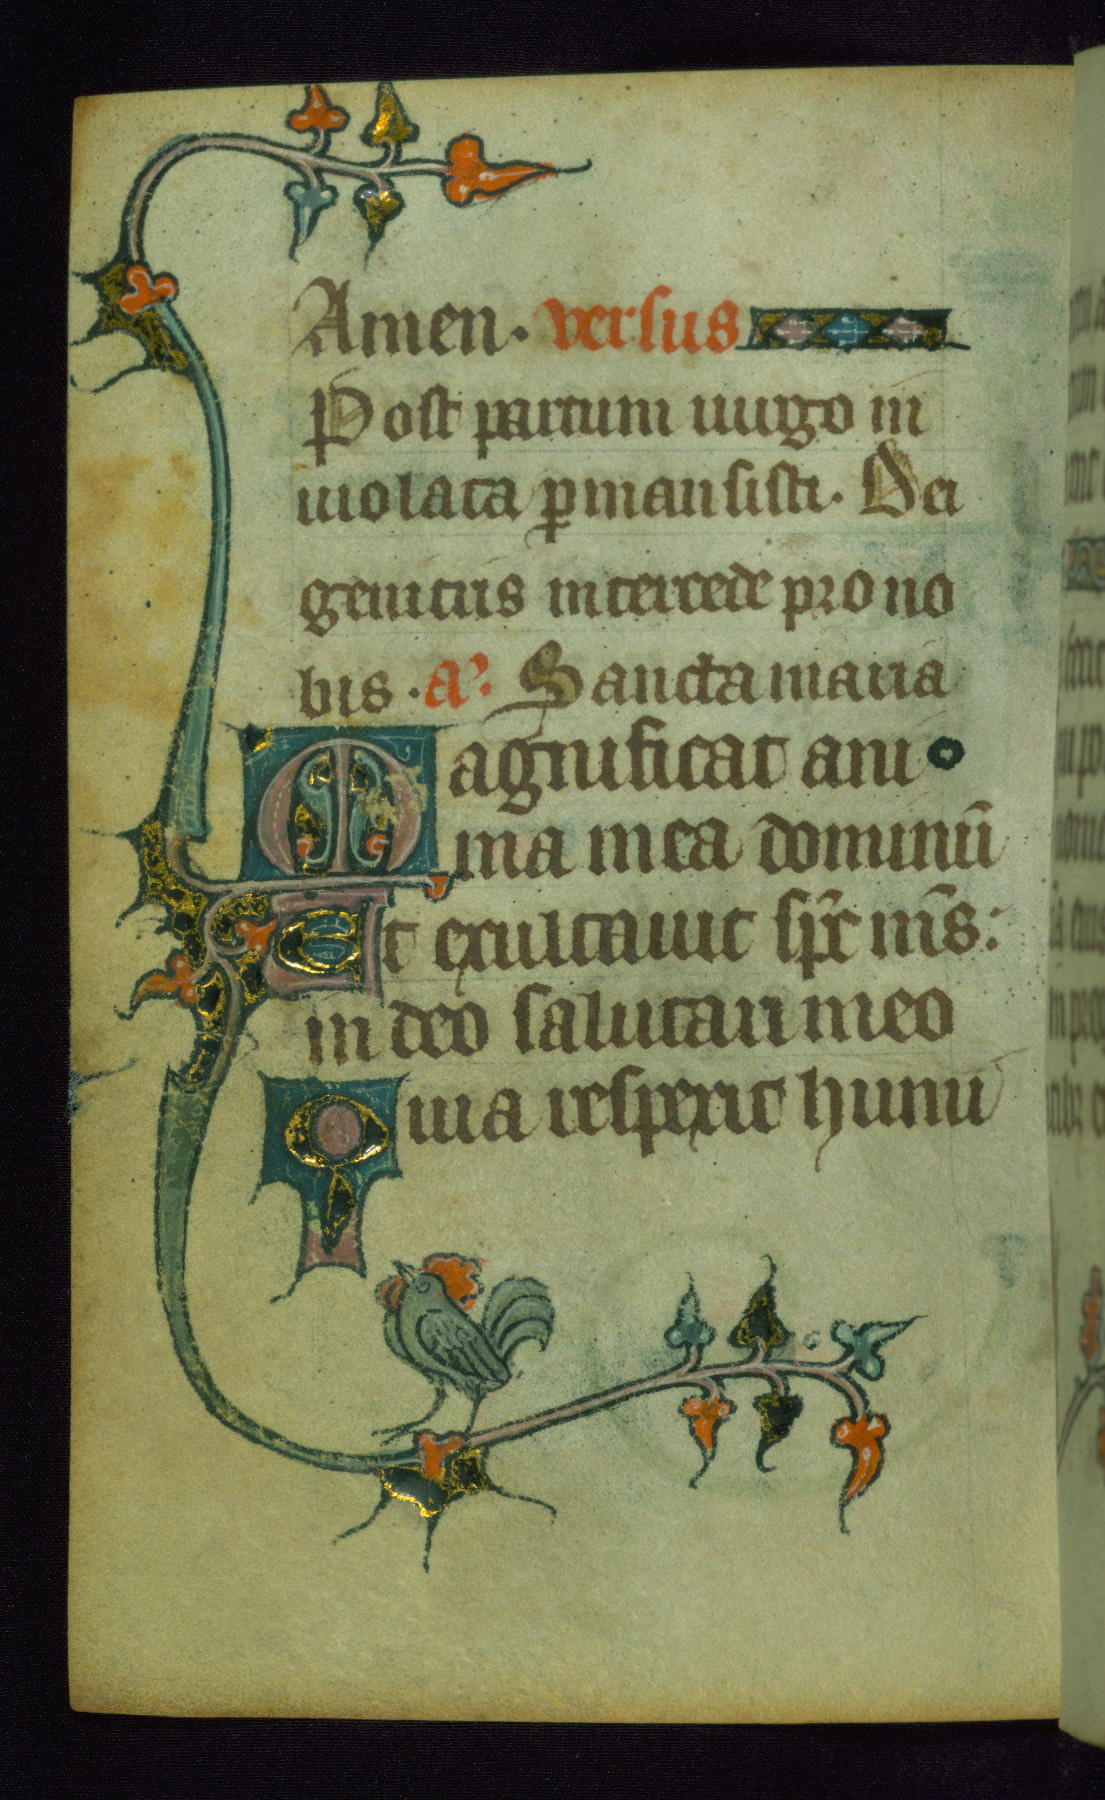 Amen. versus
Post partum uirgo in
uiolata ꝑmansisti. Dei
genitris intercede pro no
bis. aꝰ. Sancta maria
Magnificat ani
ma mea dominū
Et exultauit sp̄c m̄s:
in deo salutari meo
Quia respexit humi